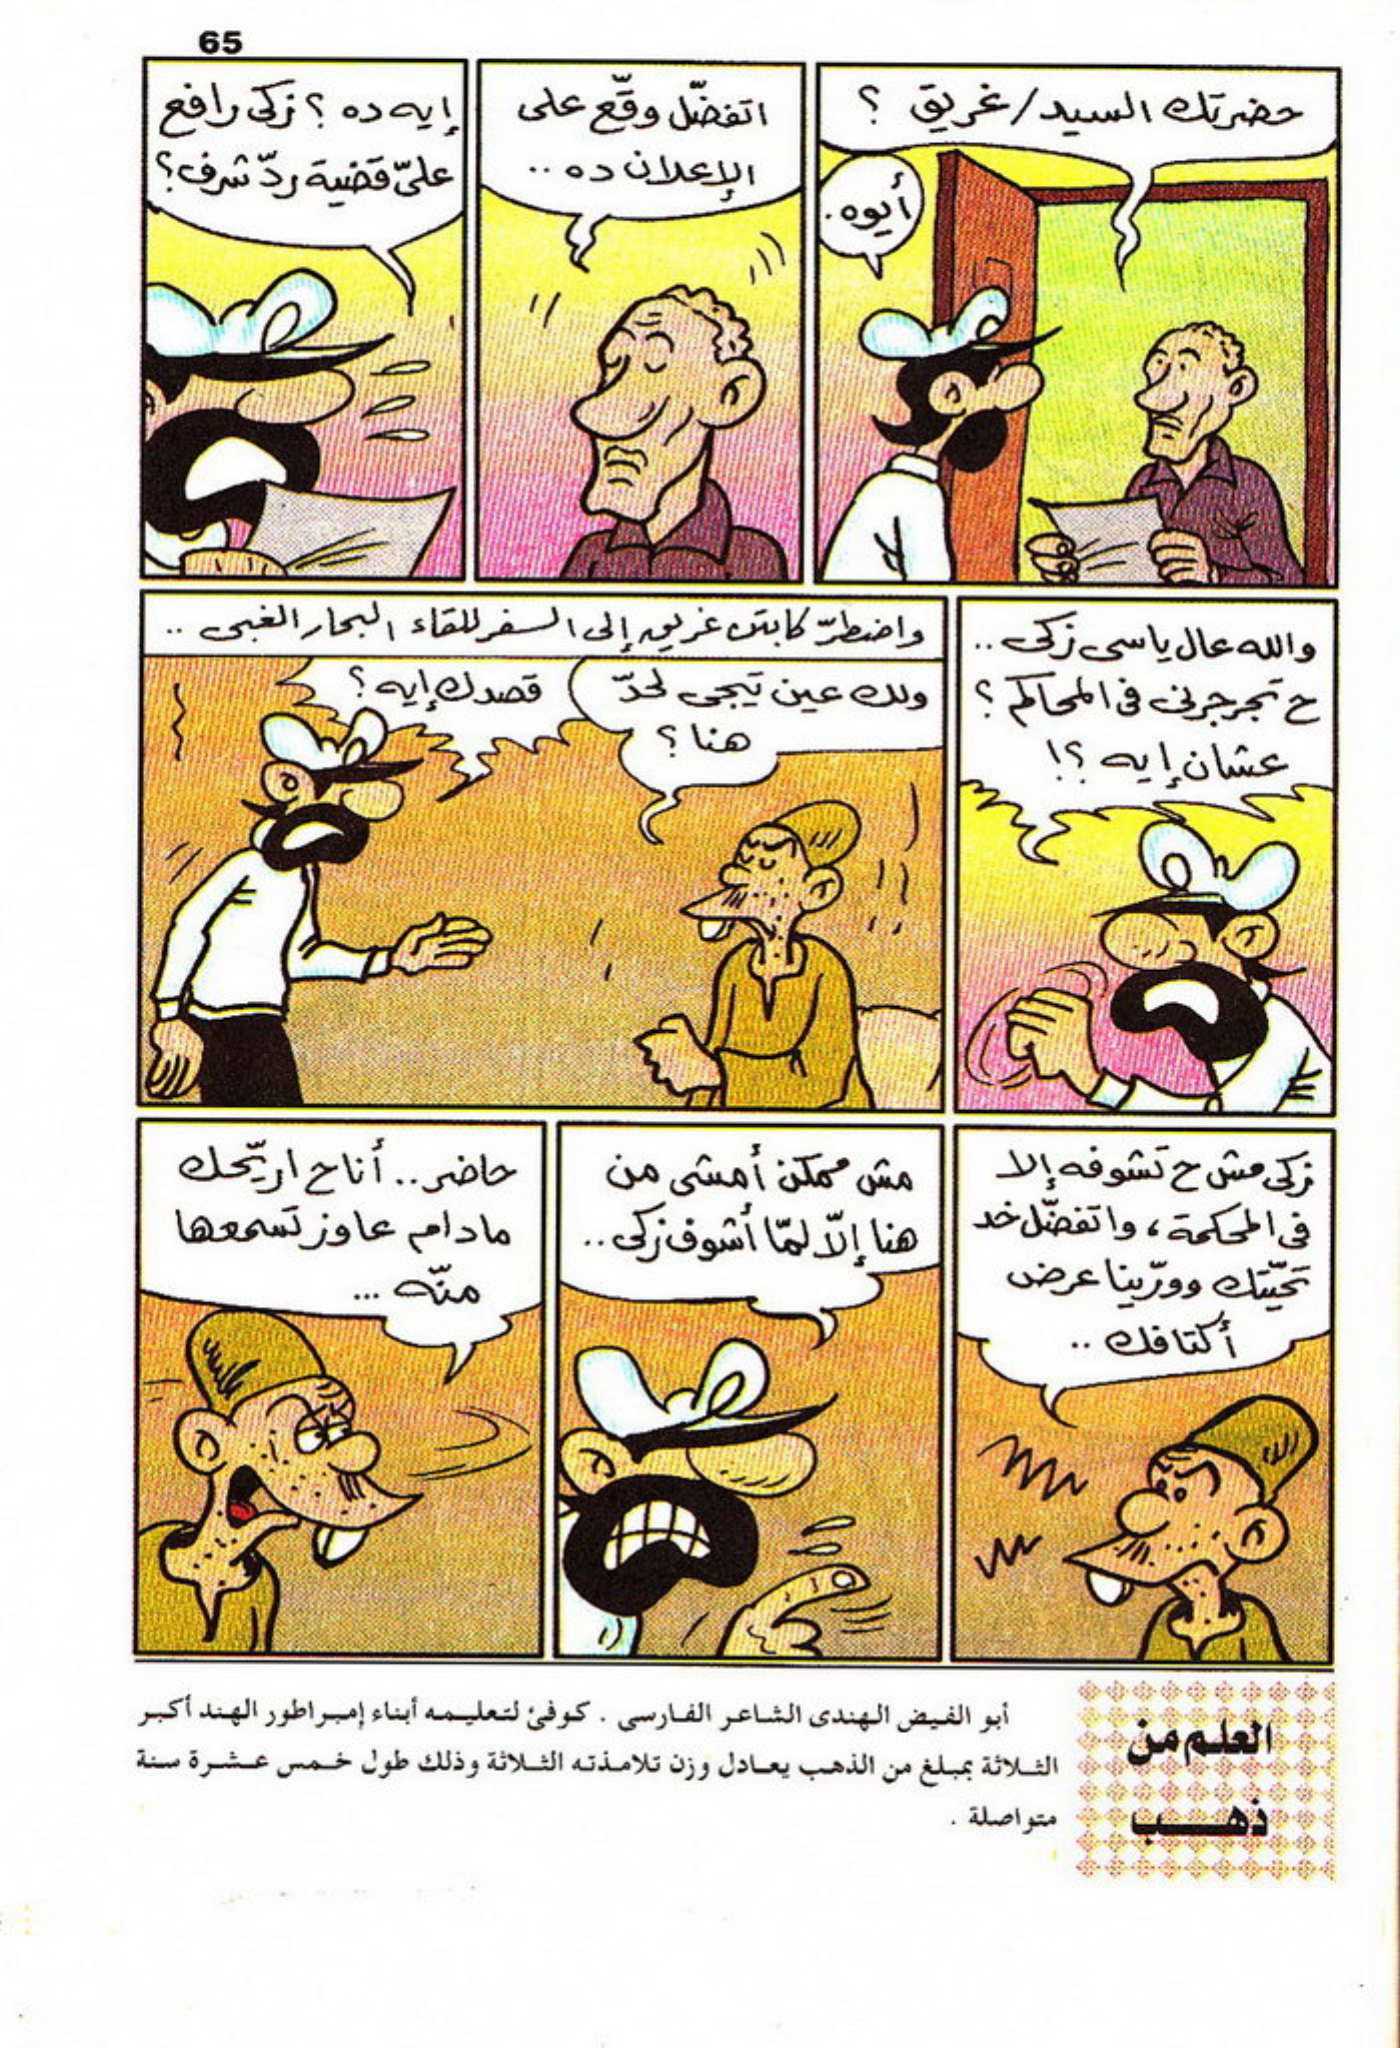 65
حضرتك السيد/غريق ؟
أيوه.
اتفضّل وقّع على
الإعلان ده ..
إيه ده ؟ زكى رافع
علىّ قضية ردّ شرف؟
والله عال ياسى زكى ..
ح تجرجرنى فى المحاكم ؟
عشان إيه ؟!
واضطرّ كابتن غريق إلى السفر للقاء البحار الغبى ..
ولك عين تيجى لحدّ
هنا ؟
قصدك إيه ؟
زكى مش ح تشوفه إلا
فى المحكمة ، واتفضّل خد
تحيّتك وورّينا عرض
أكتافك ..
مش ممكن أمشى من
هنا إلّا لمّا أشوف زكى ..
حاضر .. أنا ح اريّحك
مادام عاوز تسمعها
منّه ...
العلم من
ذهب
أبو الفيض الهندى الشاعر الفارسى . كوفئ لتعليمه أبناء إمبراطور الهند أكبر
الثلاثة بمبلغ من الذهب يعادل وزن تلامذته الثلاثة وذلك طول خمس عشرة سنة
متواصلة .